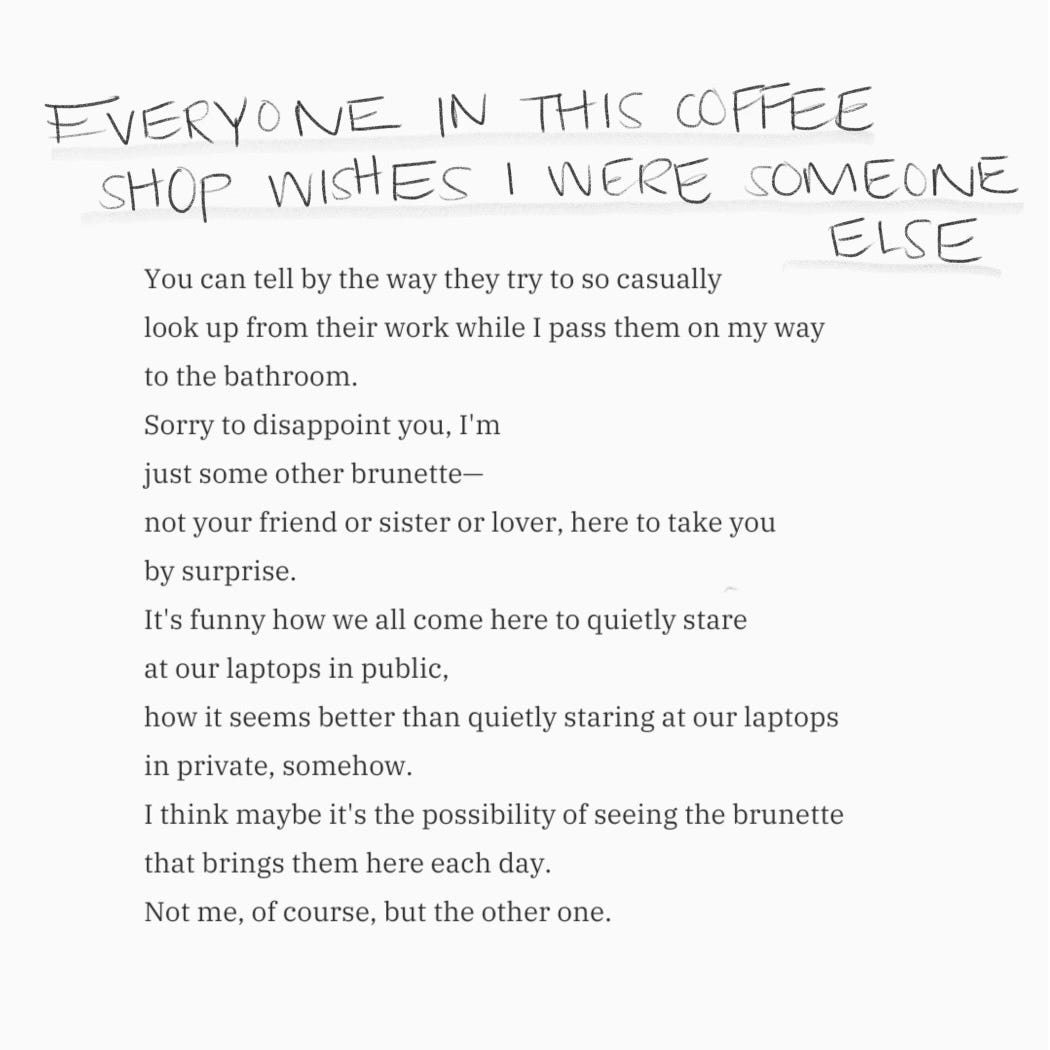 EVERYONE IN THIS COFFEE
SHOP WISHES I WERE SOMEONE
ELSE
You can tell by the way they try to so casually
look up from their work while I pass them on my way
to the bathroom.
Sorry to disappoint you, I'm
just some other brunette—
not your friend or sister or lover, here to take you
by surprise.
It's funny how we all come here to quietly stare
at our laptops in public,
how it seems better than quietly staring at our laptops
in private, somehow.
I think maybe it's the possibility of seeing the brunette
that brings them here each day.
Not me, of course, but the other one.